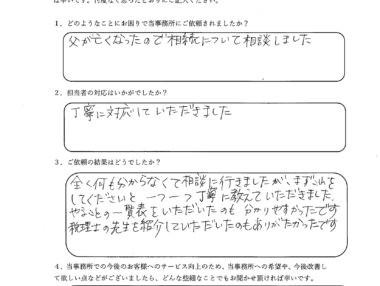 は幸いです。忖度なく思ったとおりにご記入ください。
1．どのようなことにお困りで当事務所にご依頼されましたか？
父が亡くなったので相続について相談しました
2．担当者の対応はいかがでしたか？
丁寧に対応していただきました
3．ご依頼の結果はどうでしたか？
全く何も分からなくて相談に行きましたが、まずこれを
してくださいと 一つ一つ丁寧に教えていただきました。
やることの一覧表をいただいたのも 分かりやすかったです
税理士の先生を紹介していただいたのもありがたかったです
4．当事務所での今後のお客様へのサービス向上のため、当事務所への希望や、今後改善し
て欲しい点などがございましたら、どんな些細なことでもお聞かせ頂ければ幸いです。